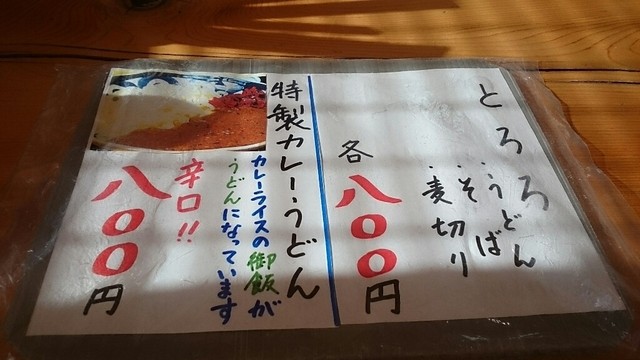 とろろ
・うどん
・そば
・麦切り
各八〇〇円
特製カレーうどん
カレーライスの御飯が
うどんになっています
辛口!!
八〇〇円